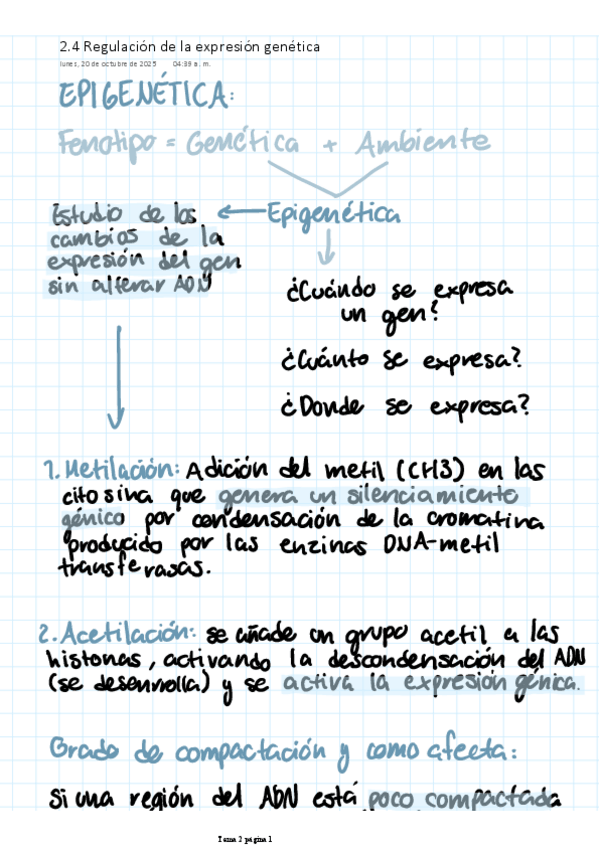 2.4 Regulación de la expresión genética
lunes, 20 de octubre de 2025 04:39 a. m.
EPIGENÉTICA:
Fenotipo = Genética + Ambiente
Estudio de los ← Epigenética
cambios de la
expresión del gen
sin alterar ADN
¿Cuándo se expresa
un gen?
¿Cuánto se expresa?
¿Donde se expresa?
1. Metilación: Adición del metil (CH3) en las
citosina que genera un silenciamiento
génico por condensación de la cromatina
producido por las enzinas DNA-metil
transferasas.
2. Acetilación: se añade un grupo acetil a las
histonas, activando la descondensación del ADN
(se desenrolla) y se activa la expresión génica.
Grado de compactación y como afecta:
Si una región del ADN está poco compactada
Tema 2 página 1